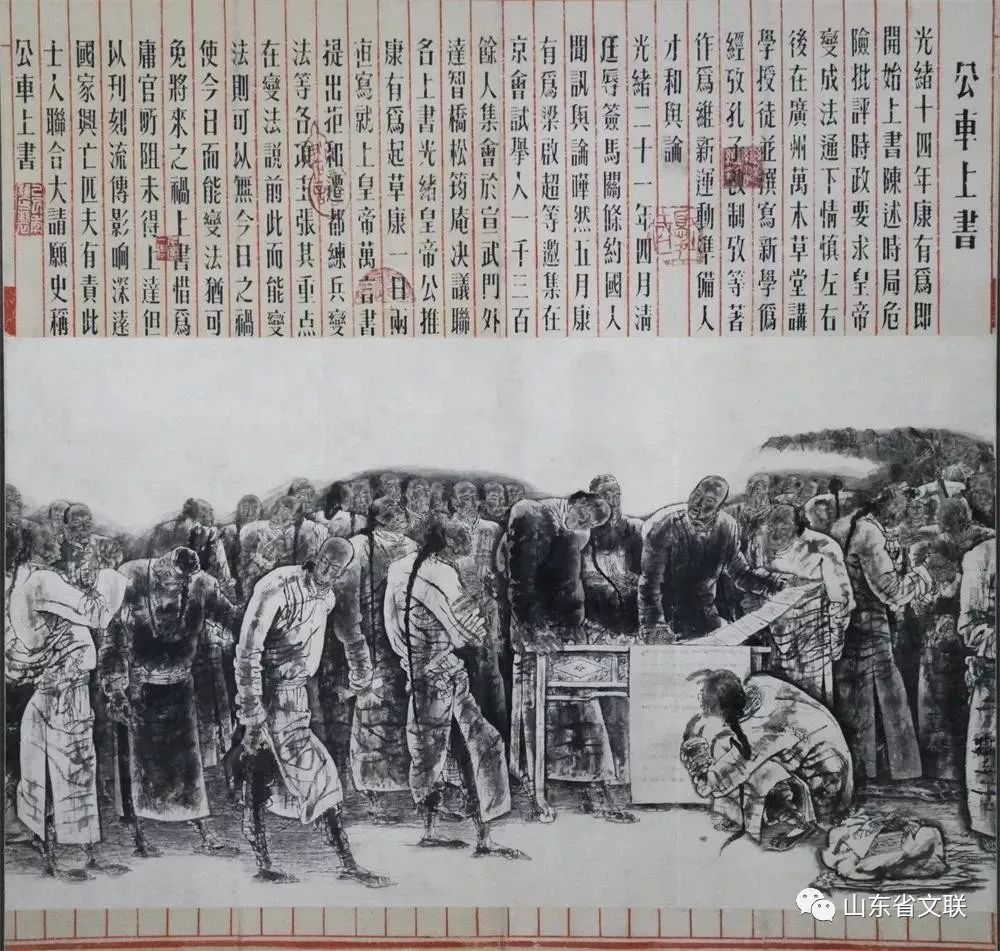 公車上書
光緒十四年康有爲即
開始上書陳述時局危
險批評時政要求皇帝
變成法通下情慎左右
後在廣州萬木草堂講
學授徒並撰寫新學僞
經攷孔子改制攷等著
作爲維新運動準備人
才和與論
光緒二十一年四月清
廷辱簽馬關條約國人
聞訊與論嘩然五月康
有爲梁啟超等邀集在
京會試舉人一千三百
餘人集會於宣武門外
達智橋松筠庵决議聯
名上書光緒皇帝公推
康有爲起草康一日兩
亱寫就上皇帝萬言書
提出拒和遷都練兵變
法等各項主張其重点
在變法説前此而能變
法則可以無今日之禍
使今日而能變法猶可
免將來之禍上書惜爲
庸官所阻未得上達但
以刊刻流傳影响深遠
國家興亡匹夫有責此
士人聯合大請願史稱
公車上書
山东省文联